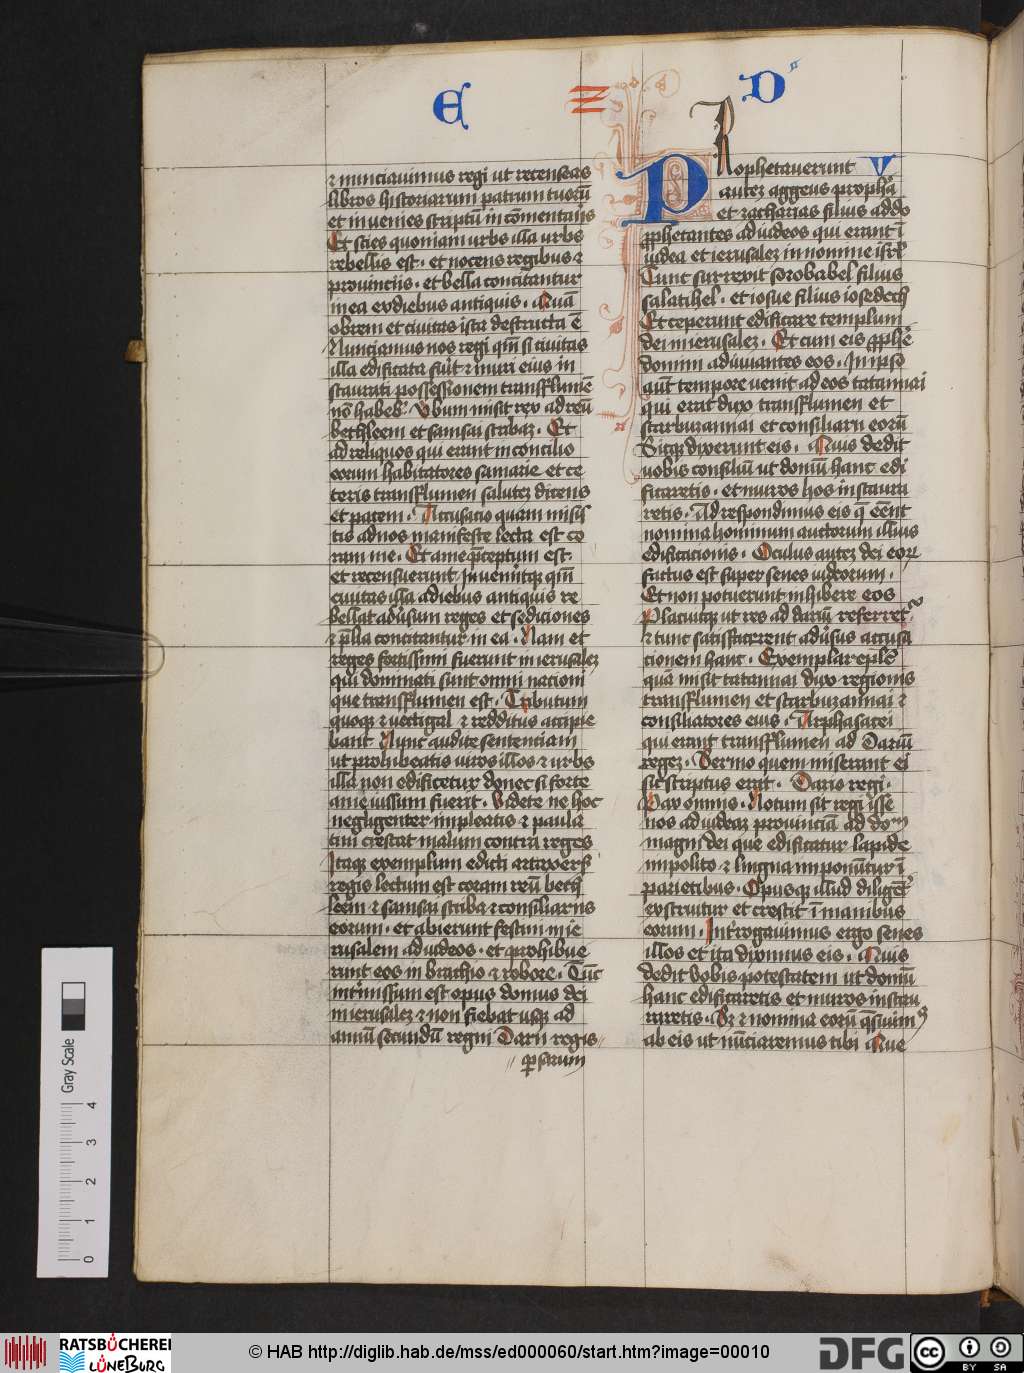 E D
⁊ nunciauimus regi ut recenseas
libros historiarum patrum tuorū
et inuenies scriptū in cōmentariis
Et scies quoniam urbs illa urbs
rebellis est · et nocens regibus ⁊
prouinciis · et bella concitantur
in ea ex diebus antiquis · Quā
obrem et ciuitas ista destructa ē
Nunciamus nos regi qm̄ si ciuitas
illa edificata fūt ⁊ muri eius in
staurati possessionem transflumē
nō habebꝭ · Vbum misit rex ad reū
bethleem et samsai scribaꝫ · Et
ad reliquos qui erant in concilio
eorum habitatores samarie et ce
teris transflumen salutez dicens
et pacem · Accusacio quam misis
tis ad nos manifeste lecta est co
ram me · Et a me p̄ceptum est
et recensuerunt Inuenitqꝫ qm̄
ciuitas illa a diebus antiquis re
bellat adūsum reges et sediciones
⁊ p̄lia concitantur in ea · Nam et
reges fortissimi fuerunt in ierusalez
qui dominati sunt omni nacioni
que transflumen est · Tributum
quoqꝫ ⁊ vectigal ⁊ redditus accipie
bant Nunc audite sentenciam
ut prohibeatis viros illos ⁊ urbs
illa non edificetur donec si forte
a me iussum fuerit · Videte ne hoc
negligenter impleatis ⁊ paula
tim crescat malum contra reges
Itaqꝫ exemplum edicti artaxerß
regis lectum est coram reū beth
leem ⁊ samsai scriba ⁊ consiliariis
eorum · et abierunt festini in ie
rusalem ad iudeos · et prohibue
runt eos in brachio ⁊ robore · Tūc
intmissum est opus domus dei
in ierusalez ⁊ non fiebat usqꝫ ad
annū secundū regni Darii regis
ꝑsarum
Prophetauerunt V
autez aggeus prophā
et zacharias filius addo
ꝓphetantes ad iudeos qui erant ī
iudea et ierusalez in nomine isrl̄
Tunc surrexit sorobabel filius
salatihel · et iosue filius iosedech
Et ceperunt edificare templum
dei in ierusalez · Et cum eis ꝓphē
domini adiuuantes eos · In ipso
aūt tempore uenit ad eos tatannai
qui erat dux transflumen et
starbuzannai et consiliarii eorū
Sicqꝫ dixerunt eis · Quis dedit
uobis consiliū ut domū hanc edi
ficaretis · et muros hos instaura
retis · Ad respondimus eis q̄ eēnt
nomina hominum auctorum illius
edificacionis · Oculus autez dei eoꝝ
factus est super senes iudeorum ·
Et non potuerunt inhibere eos
Placuitqꝫ ut res ad dariū referret
⁊ tunc satisfacerent adūsus accusa
cionem hanc · Exemplar eplē
quā misit tatannai dux regionis
transflumen et starbuzannai ⁊
consiliatores eius · Arphasacei
qui erant transflumen ad Dariū
regez · Sermo quem miserant ei
sic scriptus erat · Dario regi ·
Pax omnis · Notum sit regi isse
nos ad iudeaꝫ prouinciā ad domū
magni dei que edificatur lapide
impolito ⁊ lingua imponūtur ī
parietibus · Opusqꝫ illud diligēt
exstruitur et crescit ī manibus
eorum · Introgauimus ergo senes
illos et ita diximus eis · Quis
dedit vobis potestatem ut domū
hanc edificaretis et muros instau
raretis · Sꝫ ⁊ nomina eorū q̄siuimꝰ
ab eis ut nūciaremus tibi Que
Gray Scale
0 1 2 3 4
RATSBÜCHEREI
LÜNEBURG
© HAB http://diglib.hab.de/mss/ed000060/start.htm?image=00010
DFG
cc BY SA